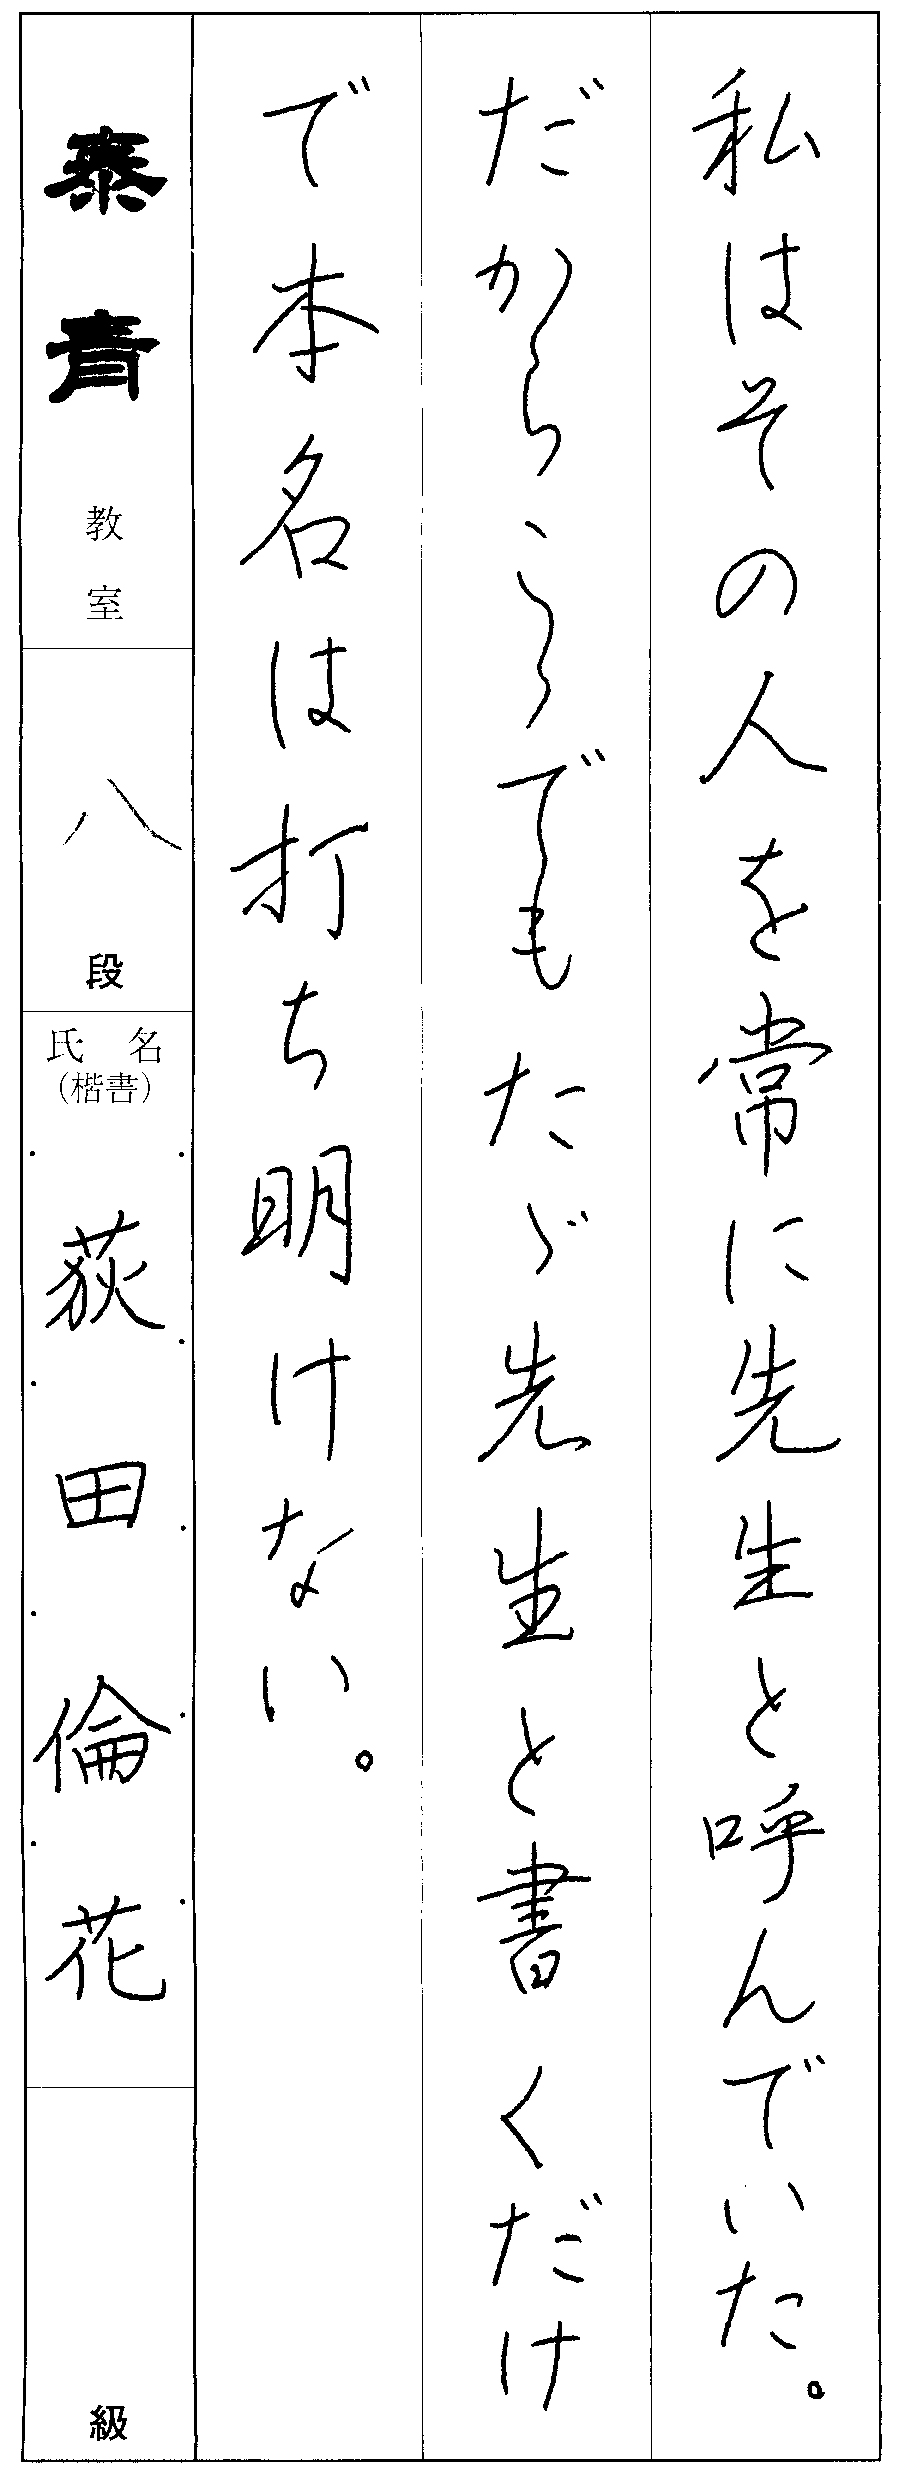 私はその人を常に先生と呼んでいた。
だからこゝでもたゞ先生と書くだけ
で本名は打ち明けない。
泰青 教室
八 段
氏名
(楷書)
荻田倫花
級